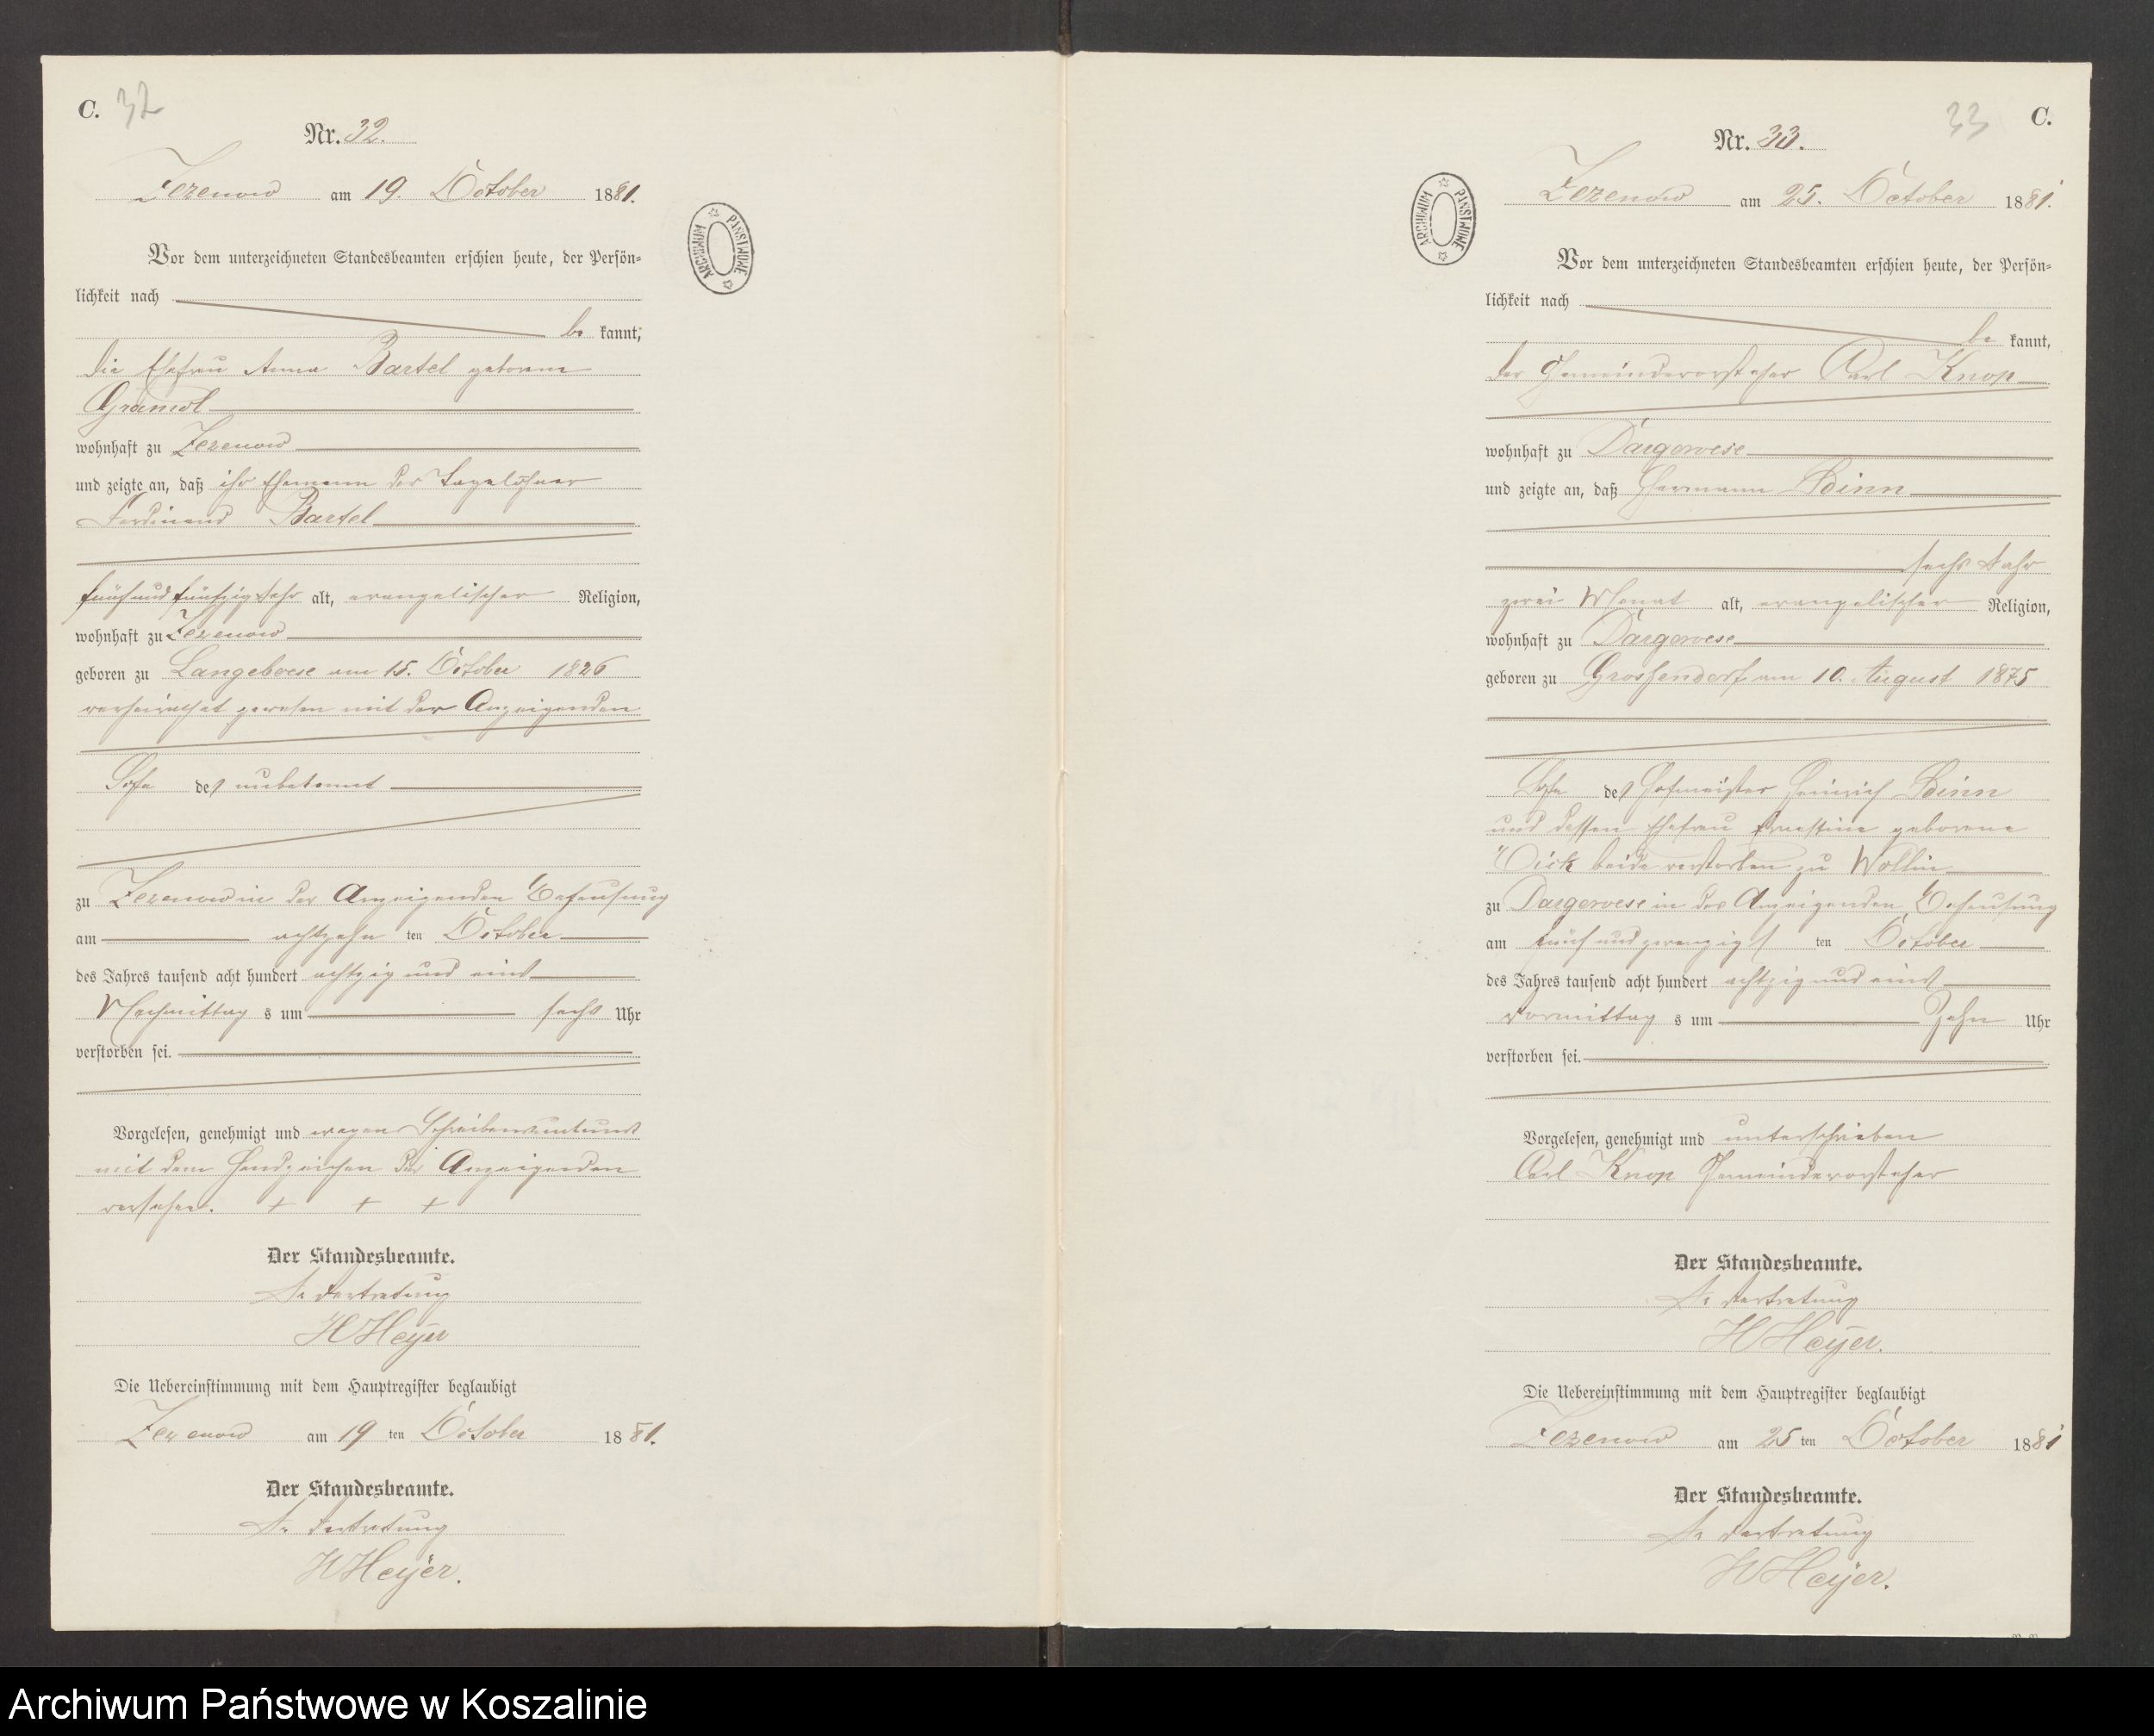 C. 32
Nr. 32.
Zezenow am 19. October 1881.
Vor dem unterzeichneten Standesbeamten erschien heute, der Persön-
lichkeit nach
be kannt,
die Ehefrau Anna Bartel geborene
Gramol
wohnhaft zu Zezenow
und zeigte an, daß ihr Ehemann der Tagelöhner
Ferdinand Bartel
fünfundfünfzig Jahr alt, evangelischer Religion,
wohnhaft zu Zezenow
geboren zu Langeboese am 15. October 1826
verheirathet gewesen mit der Anzeigenden
Sohn des unbekannt
zu Zezenow in der Anzeigenden Behausung
am achtzehn ten October
des Jahres tausend acht hundert achtzig und eins
Nachmittag s um sechs Uhr
verstorben sei.
Vorgelesen, genehmigt und wegen Schreibensunkunde
mit dem Handzeichen der Anzeigenden
versehen. + + +
Der Standesbeamte.
In Vertretung
H Heyer
Die Uebereinstimmung mit dem Hauptregister beglaubigt
Zezenow am 19 ten October 1881.
Der Standesbeamte.
In Vertretung
H Heyer.
ARCHIWUM PAŃSTWOWE
33 C.
Nr. 33.
Zezenow am 25. October 1881.
Vor dem unterzeichneten Standesbeamten erschien heute, der Persön-
lichkeit nach
be kannt,
der Gemeindevorsteher Carl Knop
wohnhaft zu Dargeroese
und zeigte an, daß Hermann Binn
sechs Jahr
zwei Monat alt, evangelischer Religion,
wohnhaft zu Dargeroese
geboren zu Grossendorf am 10. August 1875
Sohn des Hofmeister Heinrich Binn
und dessen Ehefrau Ernestine geborene
beide verstorben zu Wollin
zu Dargeroese in der Anzeigenden Behausung
am fünf und zwanzigs ten October
des Jahres tausend acht hundert achtzig und eins
Vormittag s um Zehn Uhr
verstorben sei.
Vorgelesen, genehmigt und unterschrieben
Carl Knop Gemeindevorsteher
Der Standesbeamte.
In Vertretung
H Heyer.
Die Uebereinstimmung mit dem Hauptregister beglaubigt
Zezenow am 25 ten October 1881
Der Standesbeamte.
In Vertretung
H Heyer.
ARCHIWUM PAŃSTWOWE
Archiwum Państwowe w Koszalinie